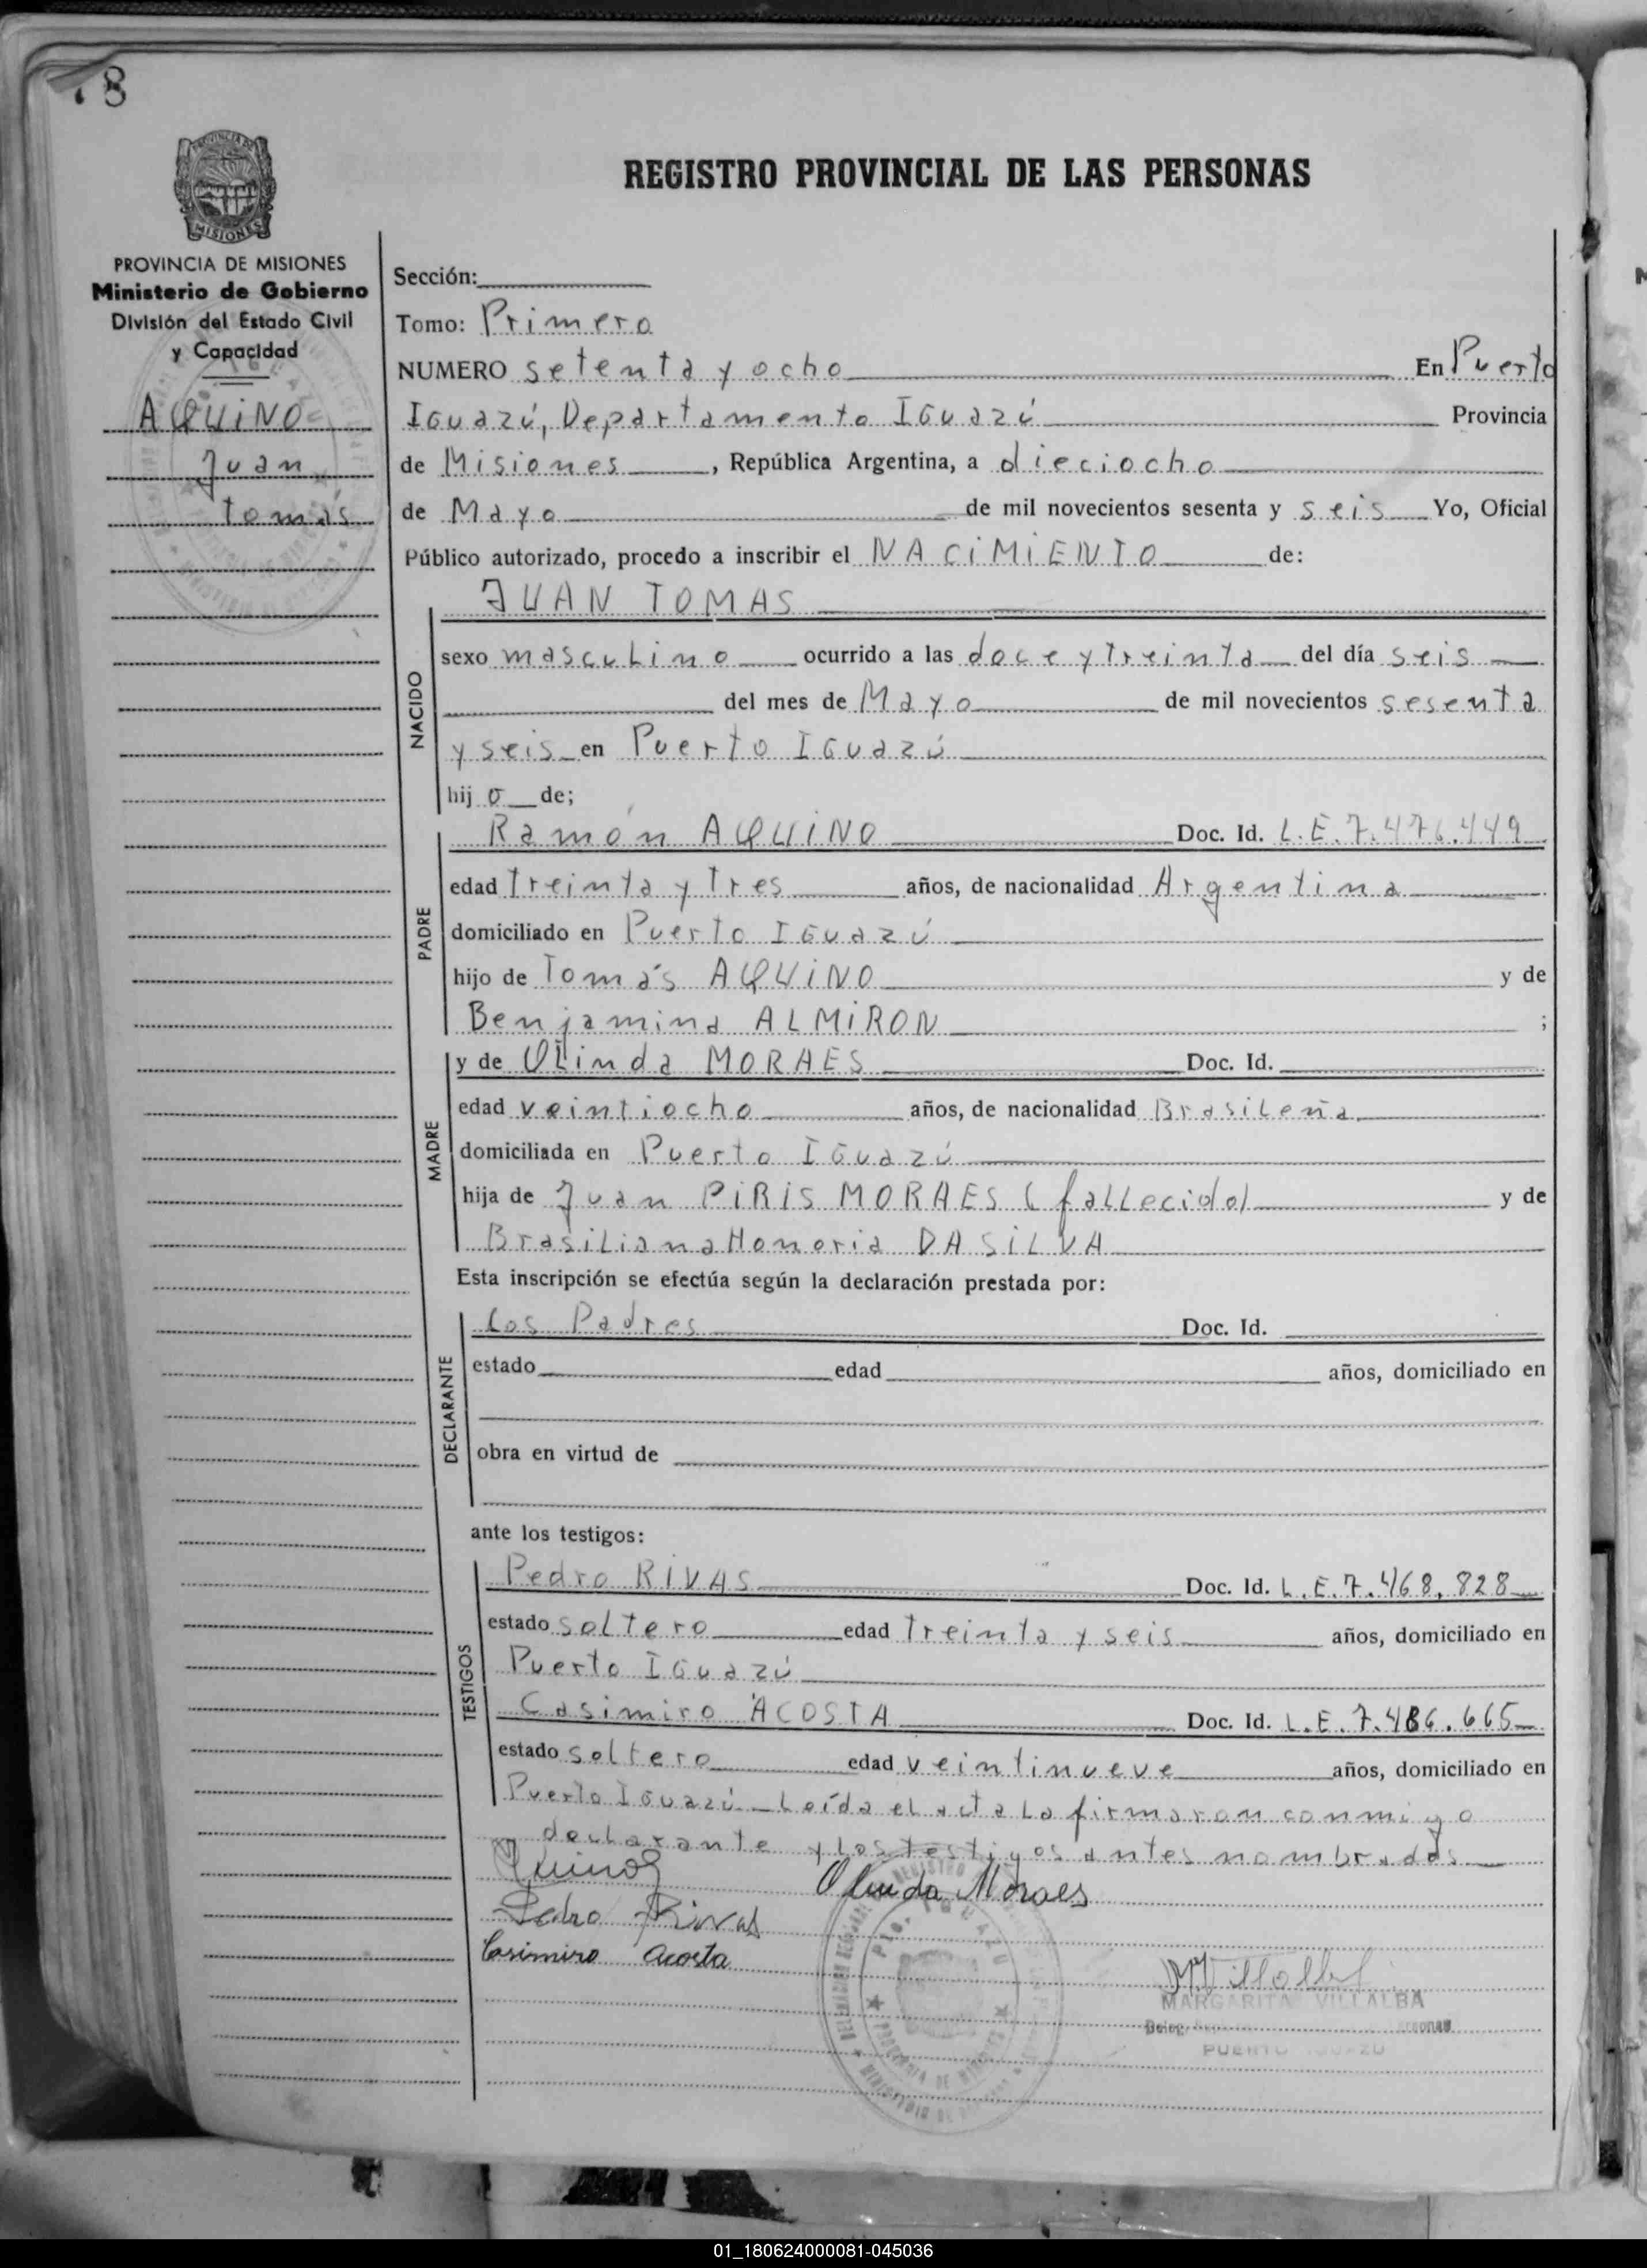 78
REGISTRO PROVINCIAL DE LAS PERSONAS
PROVINCIA DE MISIONES
Ministerio de Gobierno
División del Estado Civil
y Capacidad
AQUINO
Juan
Tomás
Sección:
Tomo: Primero
NUMERO setenta y ocho En Puerto
Iguazú, Departamento Iguazú Provincia
de Misiones, República Argentina, a dieciocho
de Mayo de mil novecientos sesenta y seis Yo, Oficial
Público autorizado, procedo a inscribir el NACIMIENTO de:
JUAN TOMAS
NACIDO
sexo masculino ocurrido a las doce y treinta del día seis
del mes de Mayo de mil novecientos sesenta
y seis en Puerto Iguazú
hij o de;
PADRE
Ramón AQUINO Doc. Id. L.E.7.476.449
edad treinta y tres años, de nacionalidad Argentina
domiciliado en Puerto Iguazú
hijo de Tomás AQUINO y de
Benjamina ALMIRON ;
MADRE
y de Olinda MORAES Doc. Id.
edad veintiocho años, de nacionalidad Brasileña
domiciliada en Puerto Iguazú
hija de Juan PIRIS MORAES (fallecido) y de
Brasiliana Honoria DA SILVA
Esta inscripción se efectúa según la declaración prestada por:
DECLARANTE
Los Padres Doc. Id.
estado edad años, domiciliado en
obra en virtud de
ante los testigos:
TESTIGOS
Pedro RIVAS Doc. Id. L.E.7.468.828
estado soltero edad treinta y seis años, domiciliado en
Puerto Iguazú
Casimiro ACOSTA Doc. Id. L.E.7.486.665
estado soltero edad veintinueve años, domiciliado en
Puerto Iguazú Leída el acta la firmaron conmigo
declarante y los testigos antes nombrados
Olinda Moraes
Pedro Rivas
Casimiro Acosta
MVillalba
MARGARITA VILLALBA
PUERTO IGUAZU
01_180624000081-045036